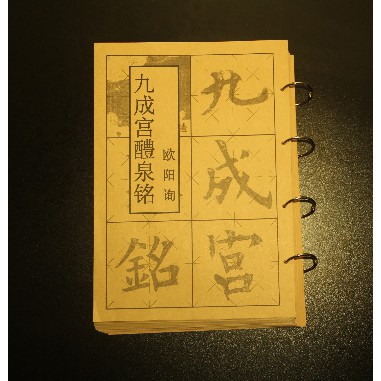 九成宫醴泉铭
欧阳询
九
成
宫
銘